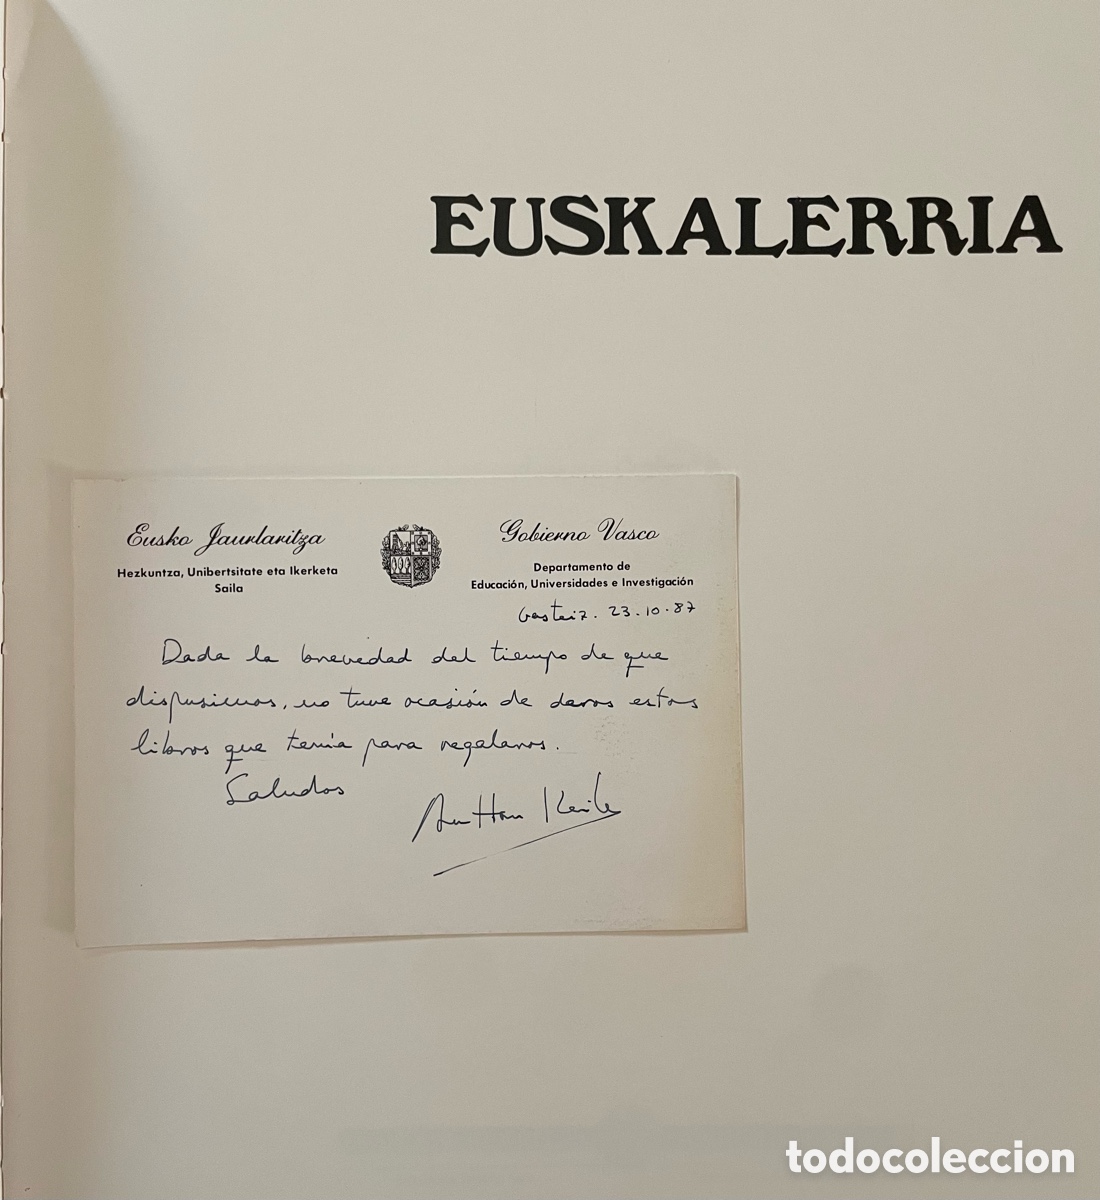 EUSKALERRIA
Eusko Jaurlaritza
Hezkuntza, Unibertsitate eta Ikerketa
Saila
Gobierno Vasco
Departamento de
Educación, Universidades e Investigación
Gasteiz. 23.10.87
Dada la brevedad del tiempo de que
dispusimos, no tuve ocasión de daros estos
libros que tenía para regalaros.
Saludos
todocoleccion